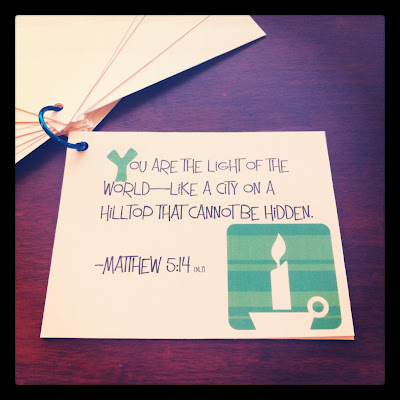 YOU ARE THE LIGHT OF THE
WORLD—LIKE A CITY ON A
HILLTOP THAT CANNOT BE HIDDEN.
-MATTHEW 5:14 (NLT)